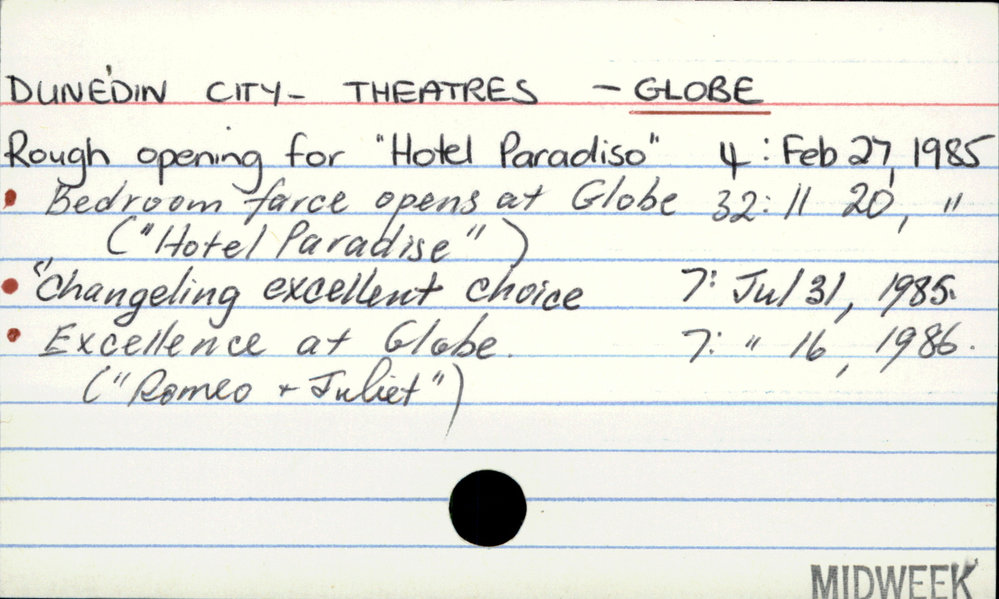 DUNEDIN CITY - THEATRES - GLOBE
Rough opening for "Hotel Paradiso" 4: Feb 27, 1985
• Bedroom farce opens at Globe 32: 11 20, "
("Hotel Paradise")
• "Changeling excellent choice 7: Jul 31, 1985.
• Excellence at Globe. 7: " 16, 1986.
("Romeo + Juliet")
MIDWEEK